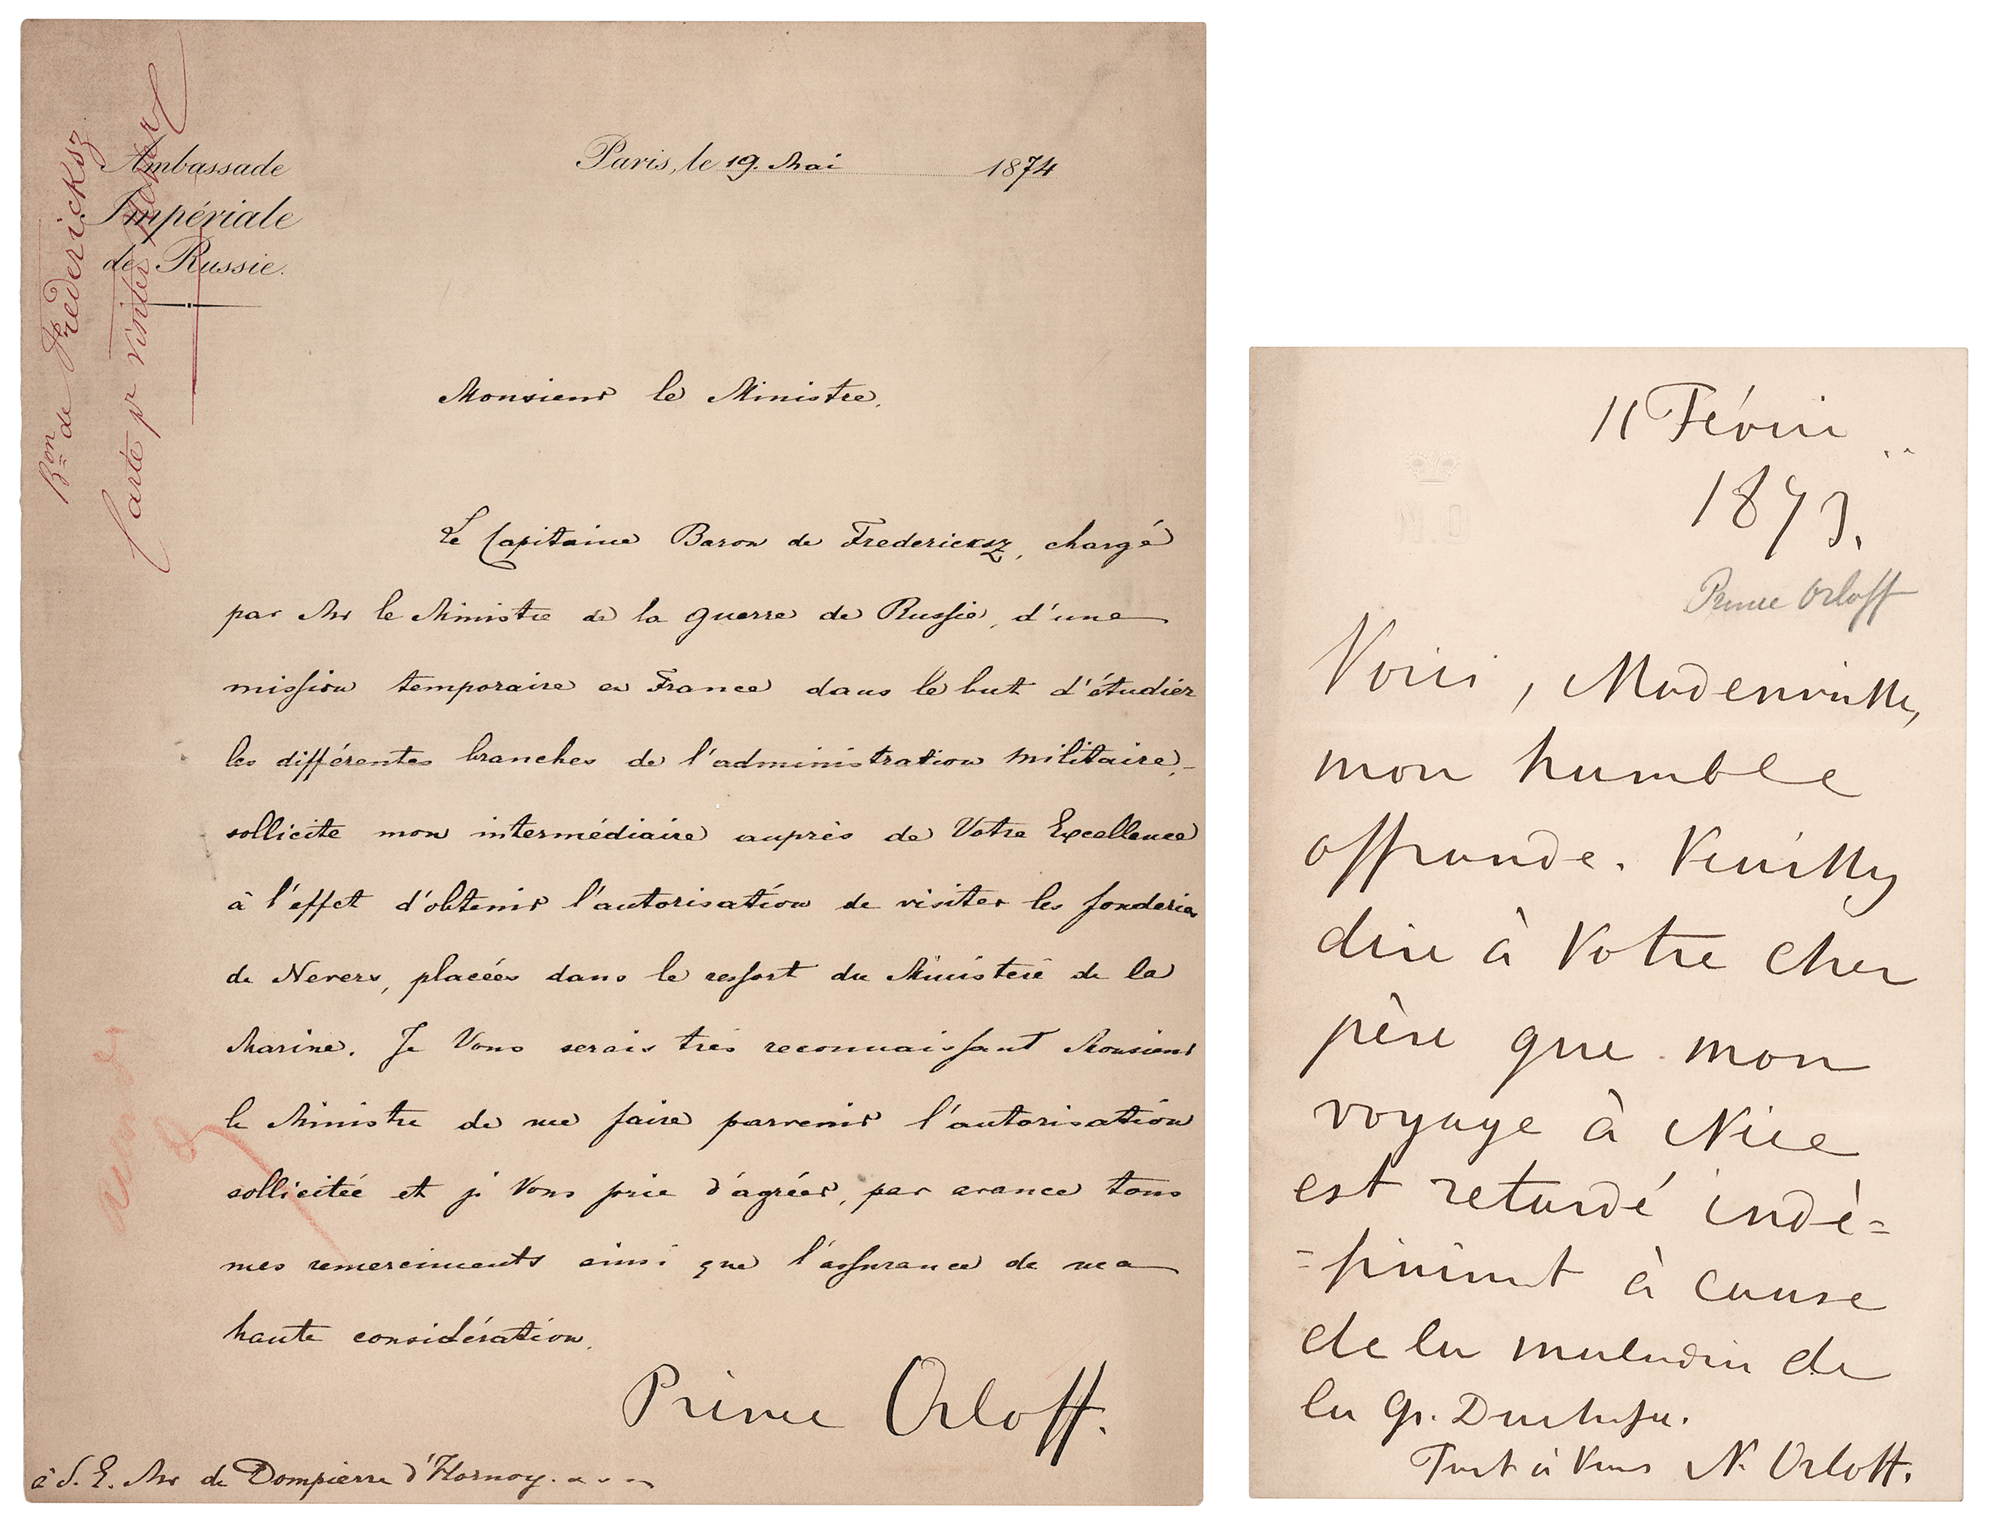 Ambassade
Impériale
de Russie.
Paris, le 19. Mai 1874
Bon de Fredericksz
Carte pr visiter
Monsieur le Ministre,
Le Capitaine Baron de Fredericksz, chargé
par Mr le Ministre de la guerre de Russie, d'une
mission temporaire en France dans le but d'étudier
les différentes branches de l'administration militaire,
sollicite mon intermédiaire auprès de Votre Excellence
à l'effet d'obtenir l'autorisation de visiter les fonderies
de Nevers, placées dans le ressort du Ministère de la
Marine. Je Vous serais très reconnaissant Monsieur
le Ministre de me faire parvenir l'autorisation
sollicitée et je Vous prie d'agréer, par avance tous
mes remerciments ainsi que l'assurance de ma
haute considération.
Prince Orloff.
à S. E. Mr de Dompierre d'Hornoy.
11 Février
1873.
Prince Orloff
Voici, Mademoiselle,
mon humble
offrande. Veuillez
dire à Votre cher
père que mon
voyage à Nice
est retardé indé=
=finiment à cause
de la maladie de
la Gr. Duchesse.
Tout à Vous N. Orloff.